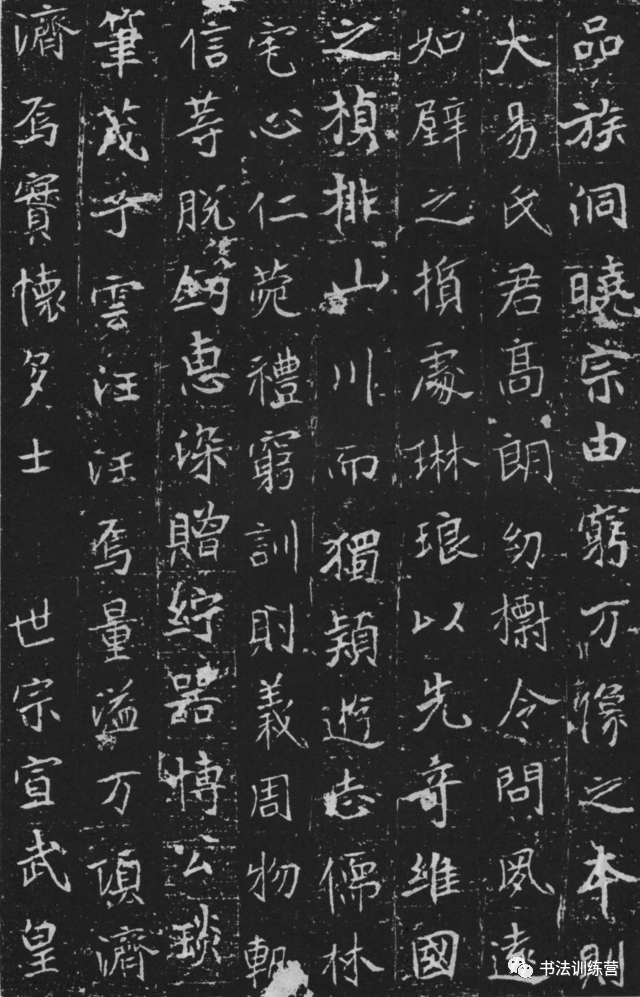 品族洞曉宗由窮万像之本則
大易氏君高朗幼檦令問夙遠
如璧之損處琳琅以先奇維國
之楨排山川而獨穎遊志儒林
宅心仁菀禮窮訓則義周物軌
信等脫劒惠深贈紵器博公琰
筆茂子雲汪汪焉量溢万頃濟
濟焉實懷多士 世宗宣武皇
书法训练营